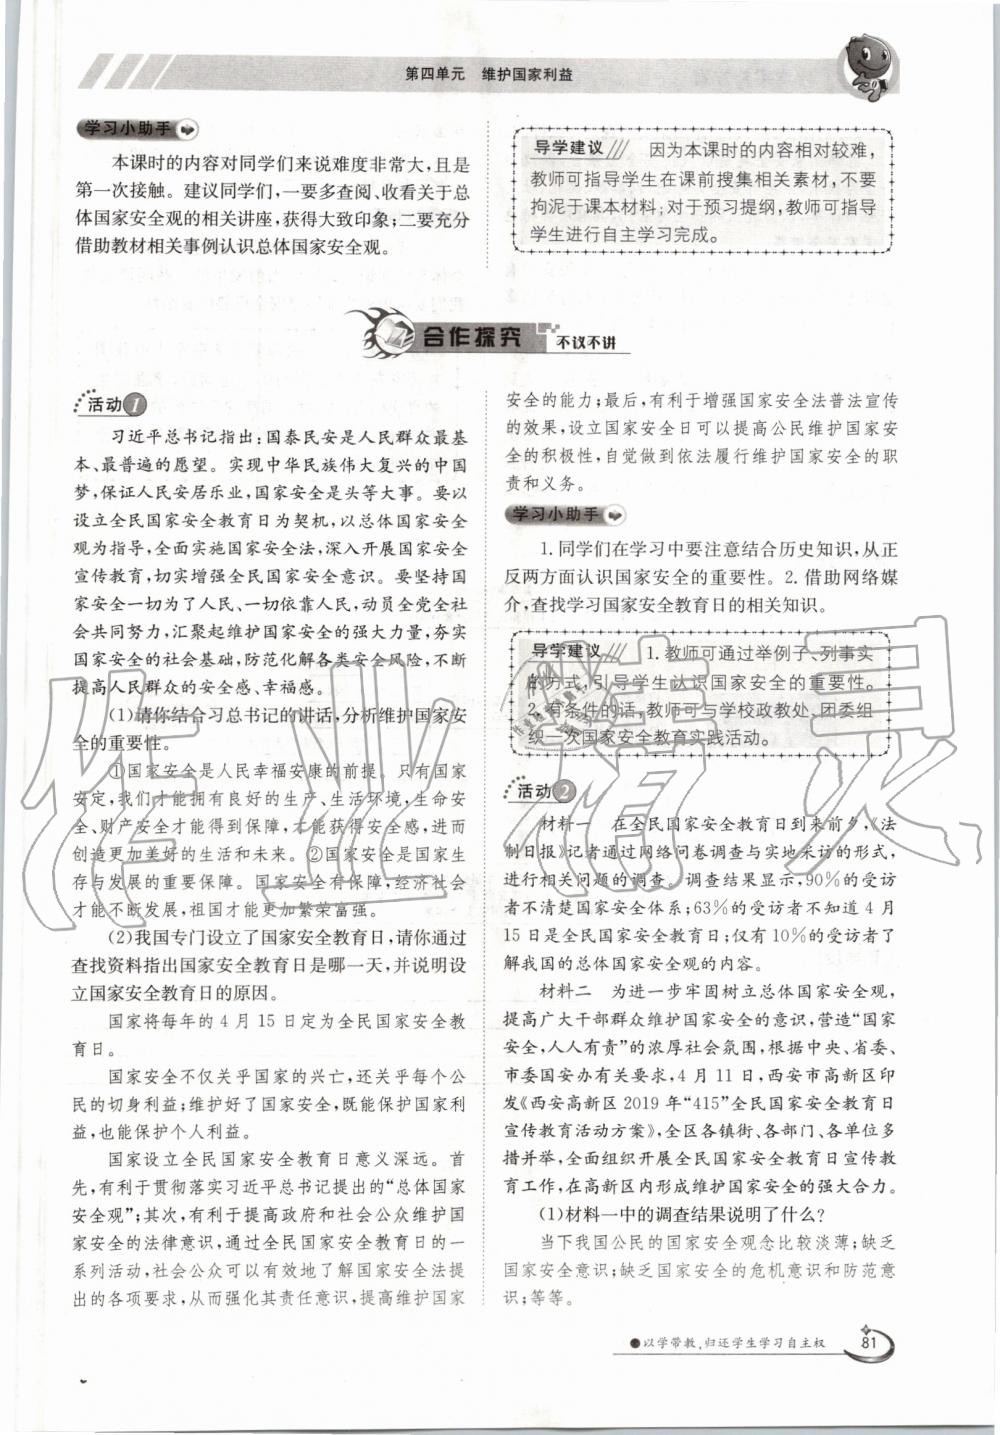 第四单元　维护国家利益
学习小助手
本课时的内容对同学们来说难度非常大,且是
第一次接触。建议同学们,一要多查阅、收看关于总
体国家安全观的相关讲座,获得大致印象;二要充分
借助教材相关事例认识总体国家安全观。
导学建议　因为本课时的内容相对较难,
教师可指导学生在课前搜集相关素材,不要
拘泥于课本材料;对于预习提纲,教师可指导
学生进行自主学习完成。
合作探究　不议不讲
活动1
习近平总书记指出:国泰民安是人民群众最基
本、最普遍的愿望。实现中华民族伟大复兴的中国
梦,保证人民安居乐业,国家安全是头等大事。要以
设立全民国家安全教育日为契机,以总体国家安全
观为指导,全面实施国家安全法,深入开展国家安全
宣传教育,切实增强全民国家安全意识。要坚持国
家安全一切为了人民、一切依靠人民,动员全党全社
会共同努力,汇聚起维护国家安全的强大力量,夯实
国家安全的社会基础,防范化解各类安全风险,不断
提高人民群众的安全感、幸福感。
(1)请你结合习总书记的讲话,分析维护国家安
全的重要性。
①国家安全是人民幸福安康的前提。只有国家
安定,我们才能拥有良好的生产、生活环境,生命安
全、财产安全才能得到保障,才能获得安全感,进而
创造更加美好的生活和未来。②国家安全是国家生
存与发展的重要保障。国家安全有保障,经济社会
才能不断发展,祖国才能更加繁荣富强。
(2)我国专门设立了国家安全教育日,请你通过
查找资料指出国家安全教育日是哪一天,并说明设
立国家安全教育日的原因。
国家将每年的4月15日定为全民国家安全教
育日。
国家安全不仅关乎国家的兴亡,还关乎每个公
民的切身利益;维护好了国家安全,既能保护国家利
益,也能保护个人利益。
国家设立全民国家安全教育日意义深远。首
先,有利于贯彻落实习近平总书记提出的“总体国家
安全观”;其次,有利于提高政府和社会公众维护国
家安全的法律意识,通过全民国家安全教育日的一
系列活动,社会公众可以有效地了解国家安全法提
出的各项要求,从而强化其责任意识,提高维护国家
安全的能力;最后,有利于增强国家安全法普法宣传
的效果,设立国家安全日可以提高公民维护国家安
全的积极性,自觉做到依法履行维护国家安全的职
责和义务。
学习小助手
1.同学们在学习中要注意结合历史知识,从正
反两方面认识国家安全的重要性。2.借助网络媒
介,查找学习国家安全教育日的相关知识。
导学建议　1.教师可通过举例子、列事实
的方式,引导学生认识国家安全的重要性。
2.有条件的话,教师可与学校政教处、团委组
织一次国家安全教育实践活动。
活动2
材料一　在全民国家安全教育日到来前夕,《法
制日报》记者通过网络问卷调查与实地采访的形式,
进行相关问题的调查。调查结果显示,90%的受访
者不清楚国家安全体系;63%的受访者不知道4月
15日是全民国家安全教育日;仅有10%的受访者了
解我国的总体国家安全观的内容。
材料二　为进一步牢固树立总体国家安全观,
提高广大干部群众维护国家安全的意识,营造“国家
安全,人人有责”的浓厚社会氛围,根据中央、省委、
市委国安办有关要求,4月11日,西安市高新区印
发《西安高新区2019年“415”全民国家安全教育日
宣传教育活动方案》,全区各镇街、各部门、各单位多
措并举,全面组织开展全民国家安全教育日宣传教
育工作,在高新区内形成维护国家安全的强大合力。
(1)材料一中的调查结果说明了什么?
当下我国公民的国家安全观念比较淡薄;缺乏
国家安全意识;缺乏国家安全的危机意识和防范意
识;等等。
●以学带教,归还学生学习自主权　81
作业精灵